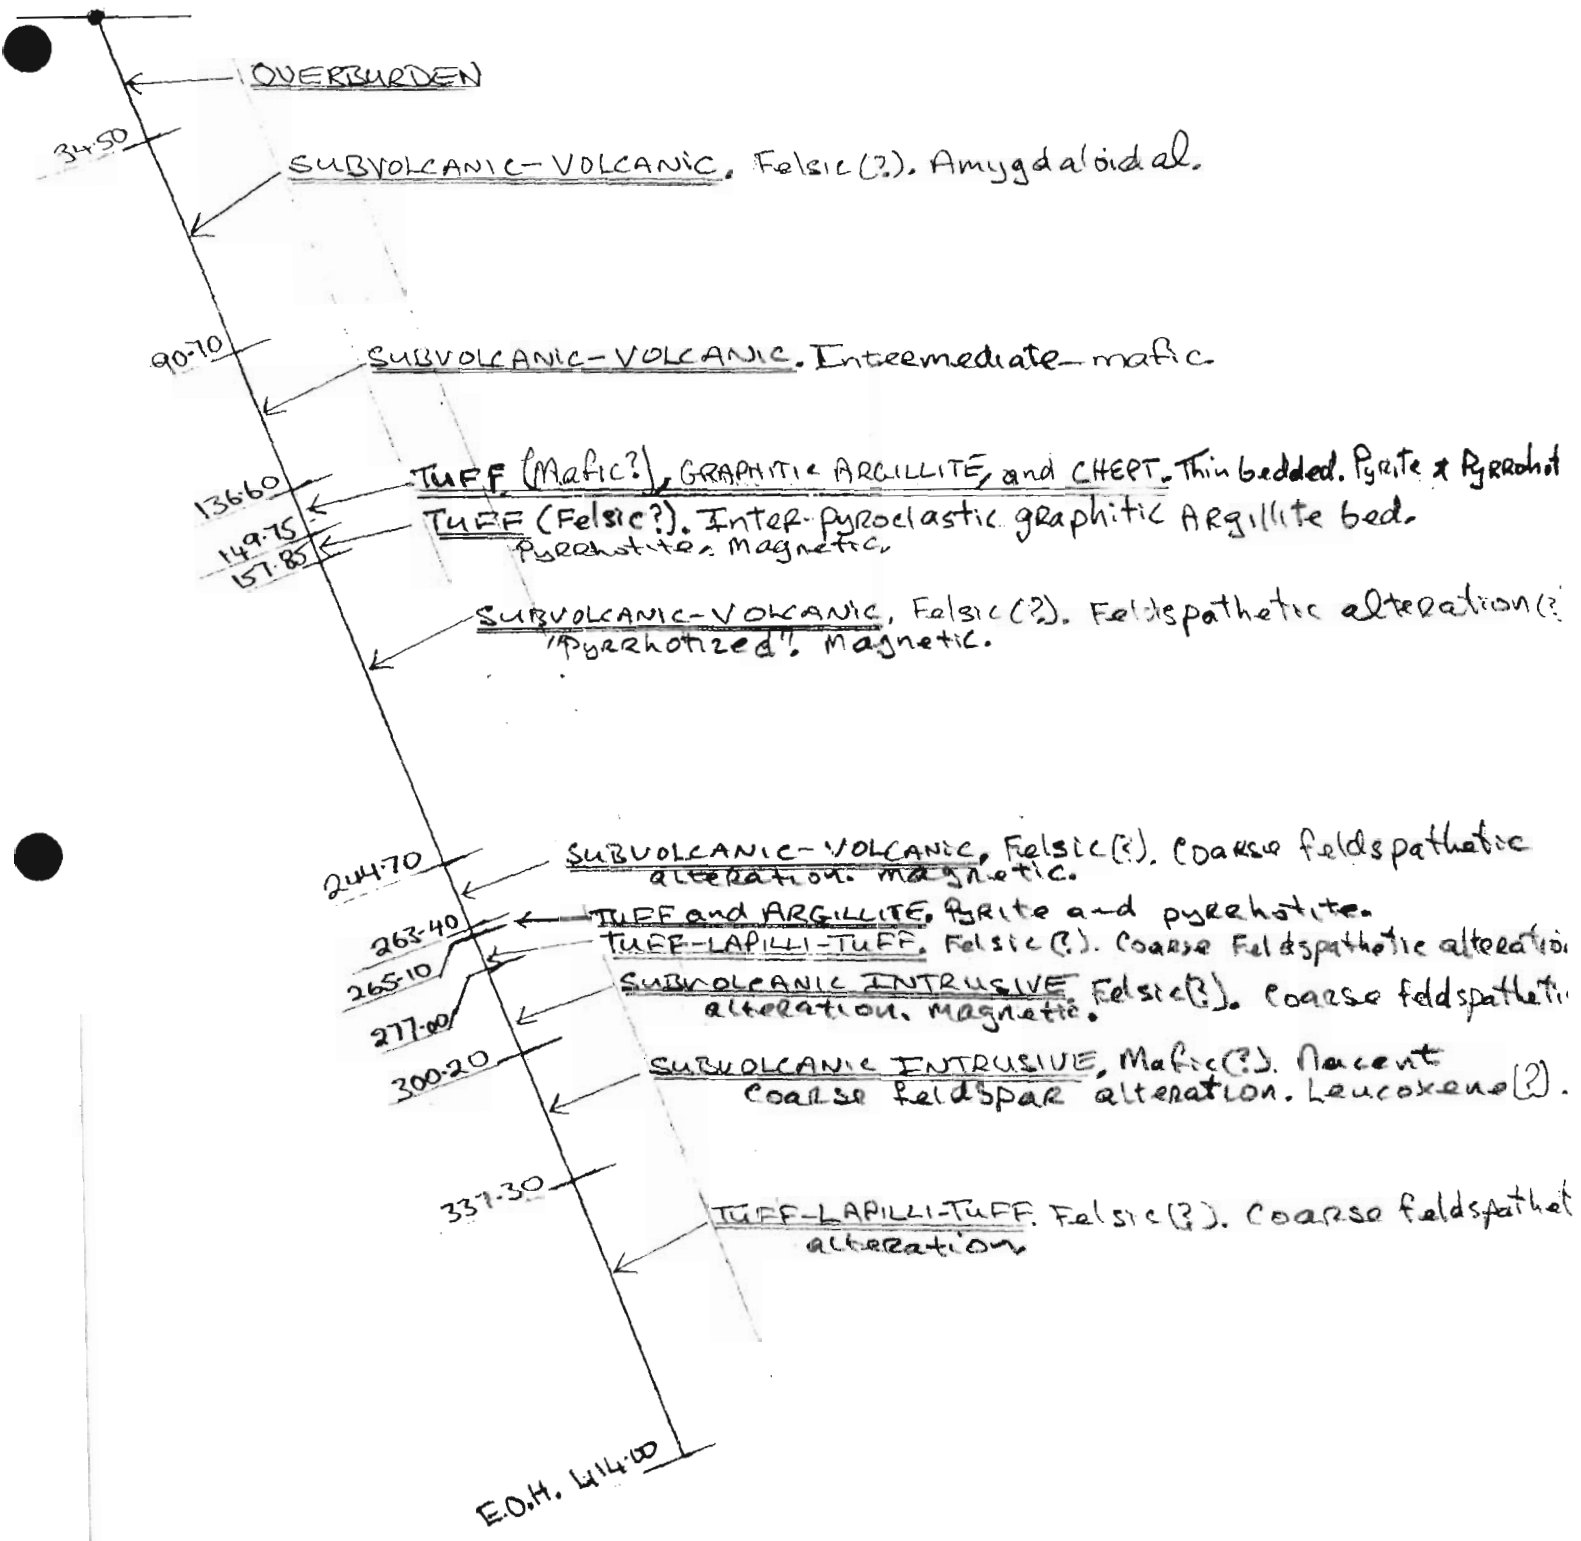 OVERBURDEN
34.50
SUBVOLCANIC-VOLCANIC. Felsic(?). Amygdaloidal.
90.70
SUBVOLCANIC-VOLCANIC. Intermediate-mafic.
136.60
TUFF (Mafic?), GRAPHITIC ARGILLITE, and CHERT. Thin bedded. Pyrite & Pyrrhot
149.75
TUFF (Felsic?). Inter-pyroclastic graphitic Argillite bed.
Pyrrhotite. Magnetic.
157.85
SUBVOLCANIC-VOLCANIC, Felsic(?). Feldspathetic alteration(?
"Pyrrhotized". Magnetic.
244.70
SUBVOLCANIC-VOLCANIC, Felsic(?). Coarse feldspathetic
alteration. Magnetic.
263.40
TUFF and ARGILLITE. Pyrite and pyrrhotite.
265.10
TUFF-LAPILLI-TUFF. Felsic(?). Coarse Feldspathetic alteratio
277.00
SUBVOLCANIC INTRUSIVE. Felsic(?). Coarse feldspatheti
alteration. Magnetic.
300.20
SUBVOLCANIC INTRUSIVE, Mafic(?). Nacent
Coarse feldspar alteration. Leucoxene(?).
337.30
TUFF-LAPILLI-TUFF. Felsic(?). Coarse feldspathet
alteration.
E.O.H. 414.00